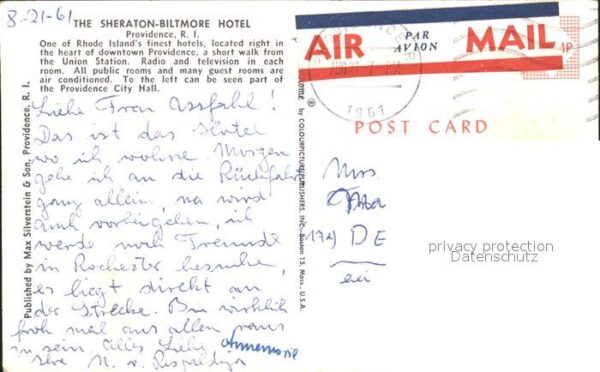 8-21-61
THE SHERATON-BILTMORE HOTEL
Providence, R. I.
One of Rhode Island's finest hotels, located right in
the heart of downtown Providence, a short walk from
the Union Station. Radio and television in each
room. All public rooms and many guest rooms are
air conditioned. To the left can be seen part of
the Providence City Hall.
Liebe Frau Assfahl!
Das ist das Hotel
wo ich wohne. Morgen
gehe ich an die Rückfahrt
ganz allein, na wird
auch vorbeigehen, ich
werde noch Freunde
in Rochester besuchen,
es liegt direkt an
der Strecke. Bin wirklich
froh mal aus allem raus
zu sein alles Liebe Annemarie
Published by Max Silverstein & Son, Providence, R. I.
by COLOURPICTURE PUBLISHERS, INC., Boston 15, Mass., U.S.A.
AIR PAR AVION MAIL
1961
POST CARD
Mrs
DE
privacy protection
Datenschutz